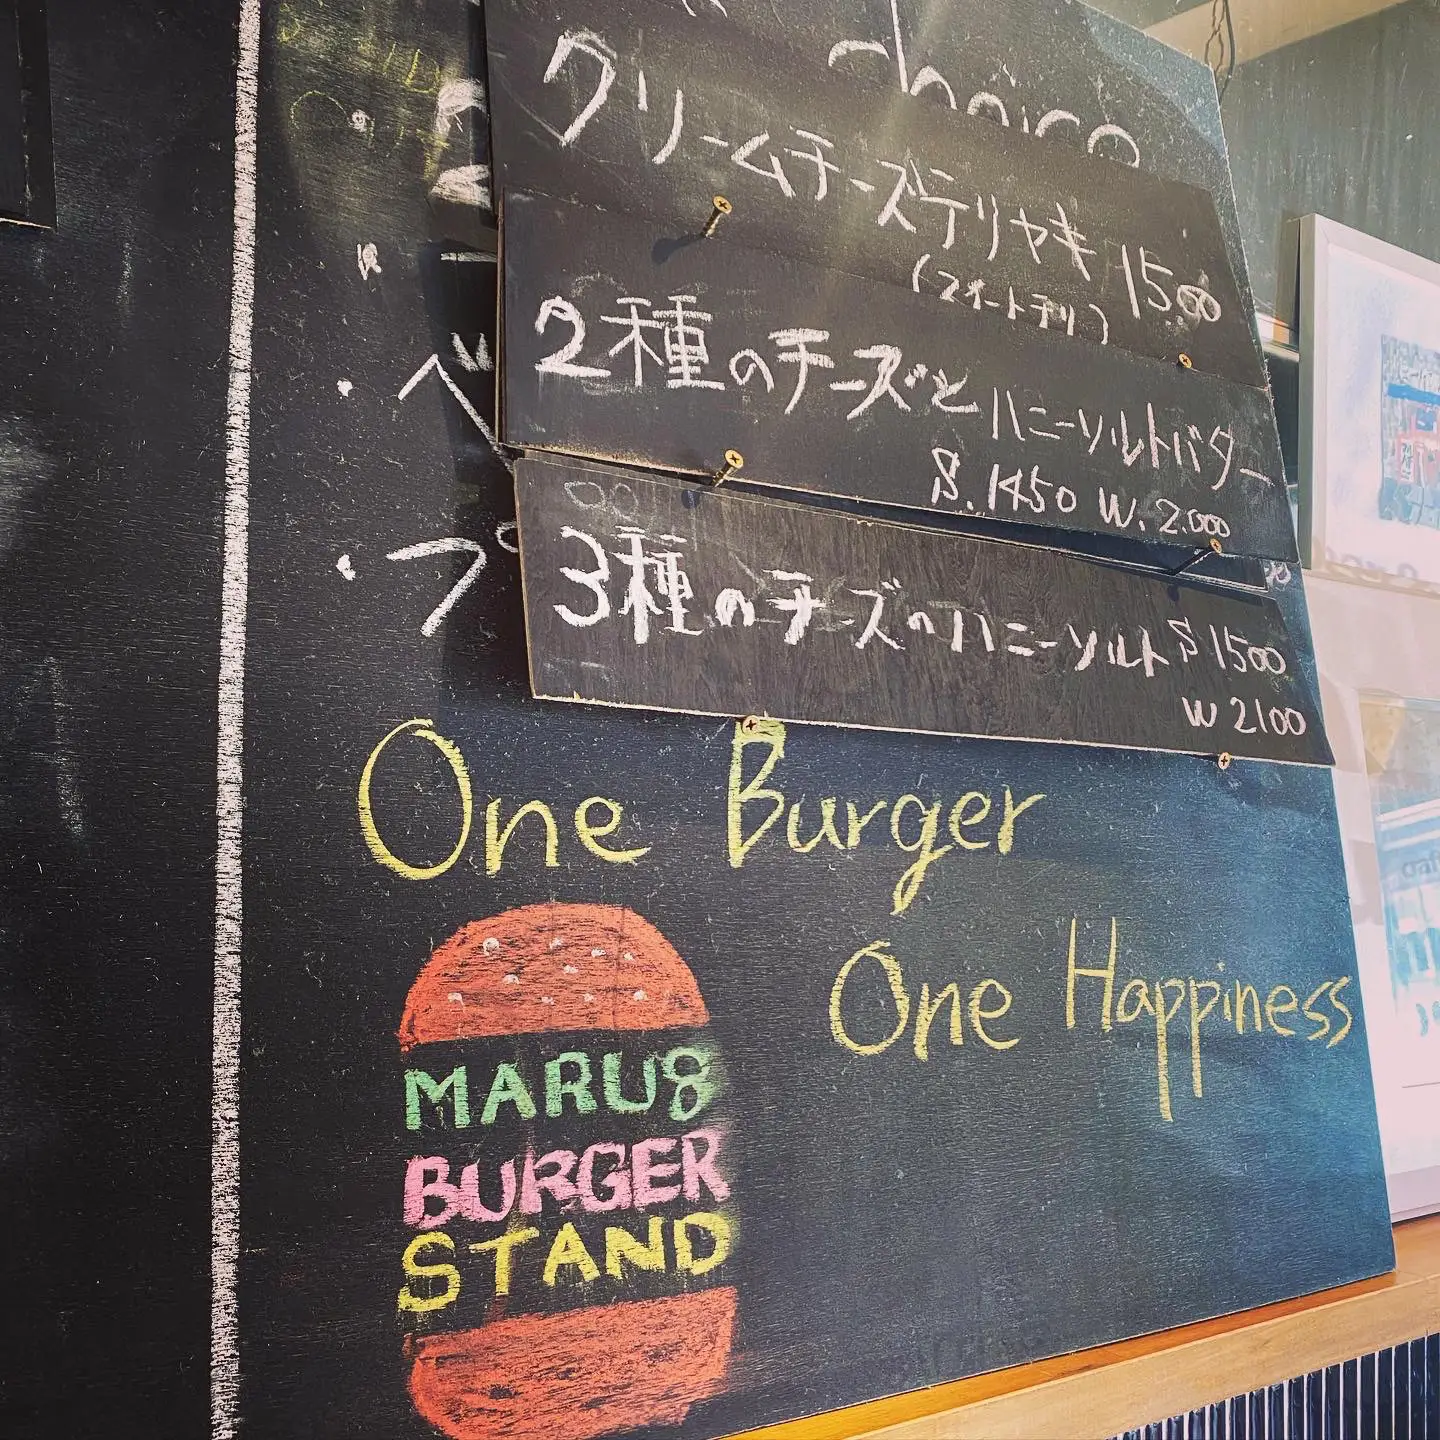 クリームチーズテリヤキ 1500
(スイートテリ)
2種のチーズとハニーソルトバター
S. 1450 W. 2.000
3種のチーズのハニーソルト S 1500
W 2100
One Burger
One Happiness
MARU8
BURGER
STAND